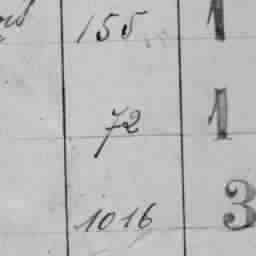 155 1
72 1
1016 3